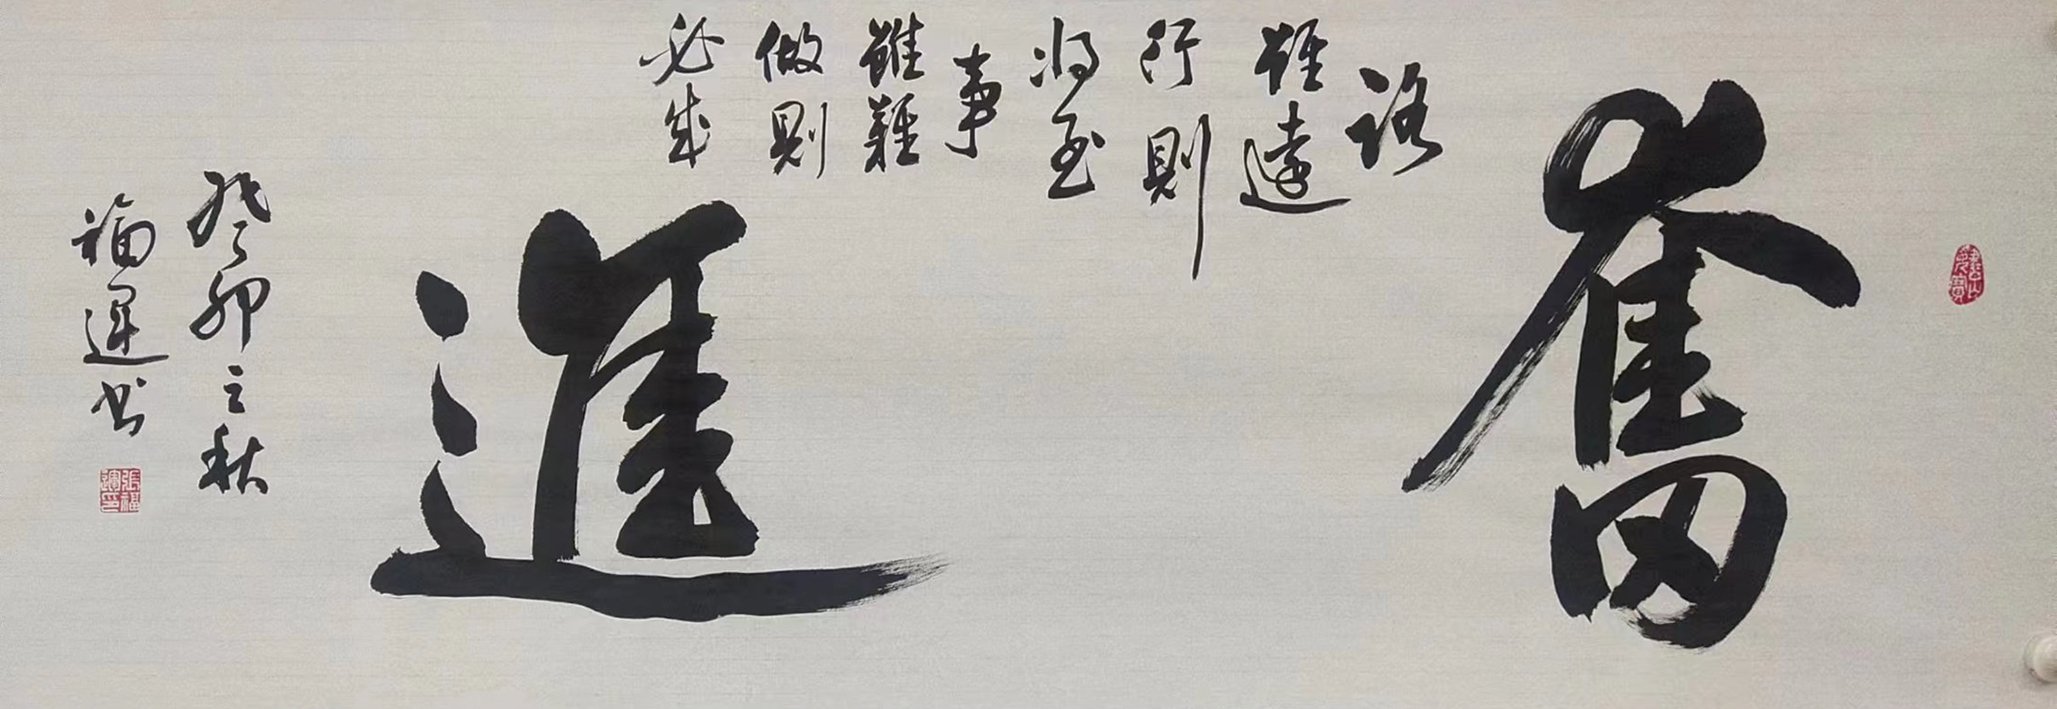 奮
路
雖遠
行則
將至
事
雖難
做則
必成
進
癸卯之秋
福運書
張福
運印